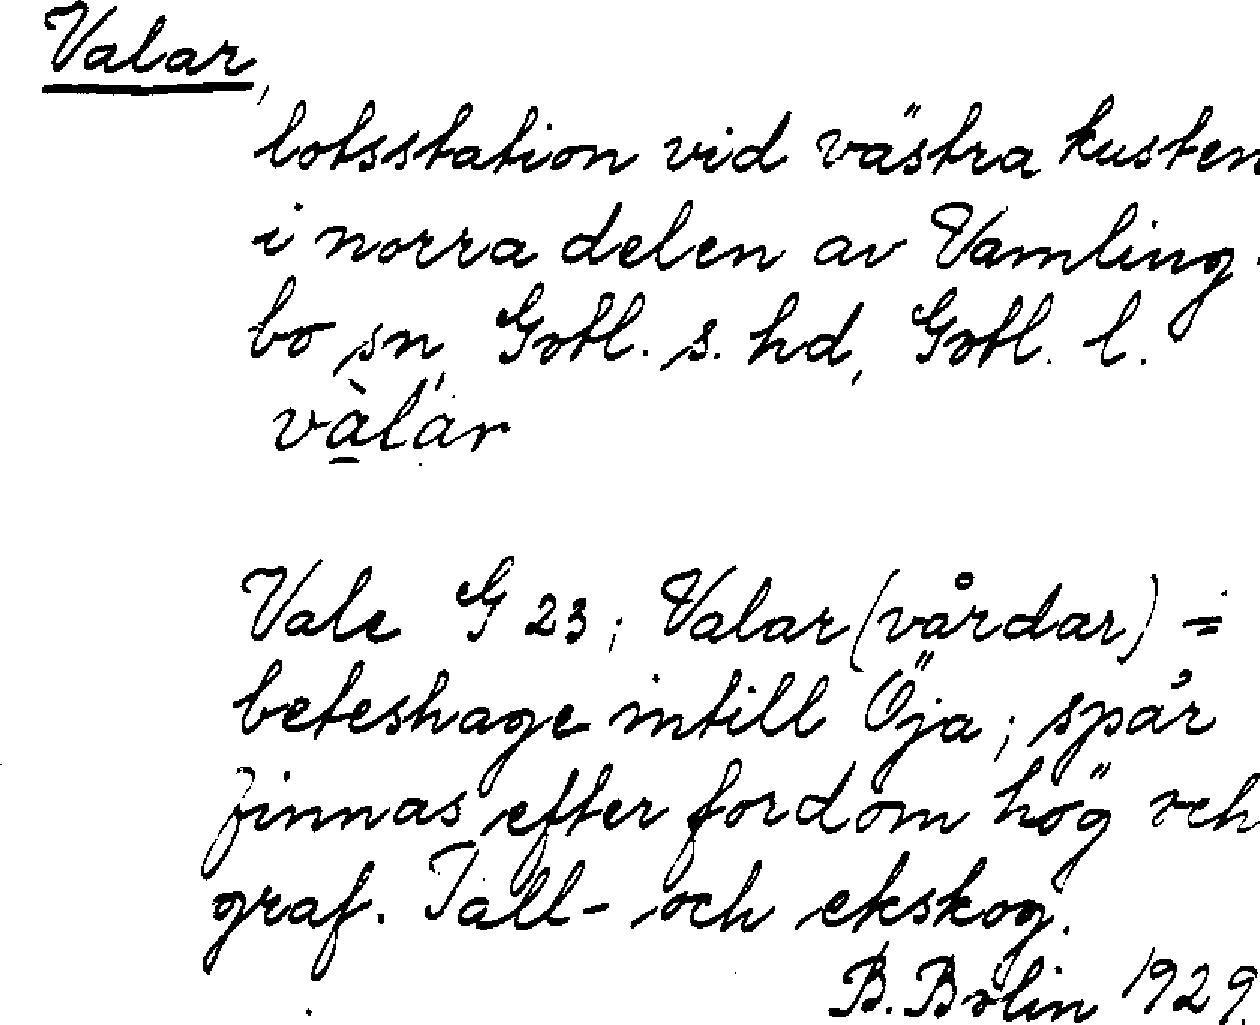 Valar,
lotsstation vid västra kusten
i norra delen av Vamling-
bo sn, Gotl. s. hd, Gotl. l.
vàlär
Vale G 23; Valar (vårdar) =
beteshage intill Öja; spår
finnas efter fordom hög och
graf. Tall- och ekskog.
B. Bolin 1929.